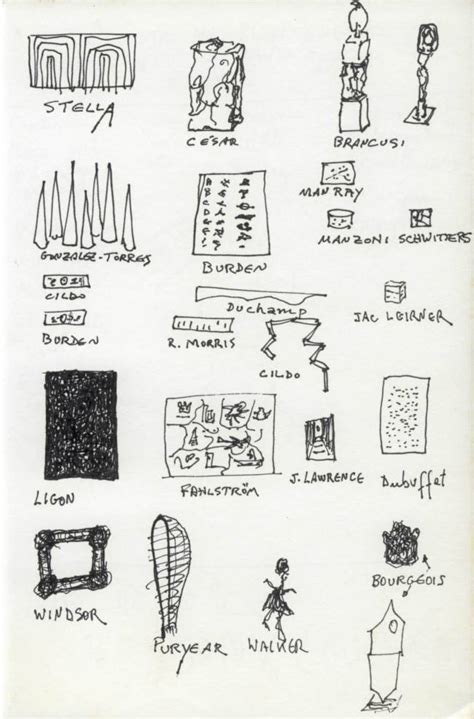 STELLA
CÉSAR
BRANCUSI
MAN RAY
GONZALEZ-TORRES
BURDEN
MANZONI SCHWITTERS
CILDO
Duchamp
BURDEN
R. MORRIS
CILDO
JAC LEIRNER
LIGON
FAHLSTRÖM
J. LAWRENCE
Dubuffet
WINDSOR
PURYEAR
WALKER
BOURGEOIS